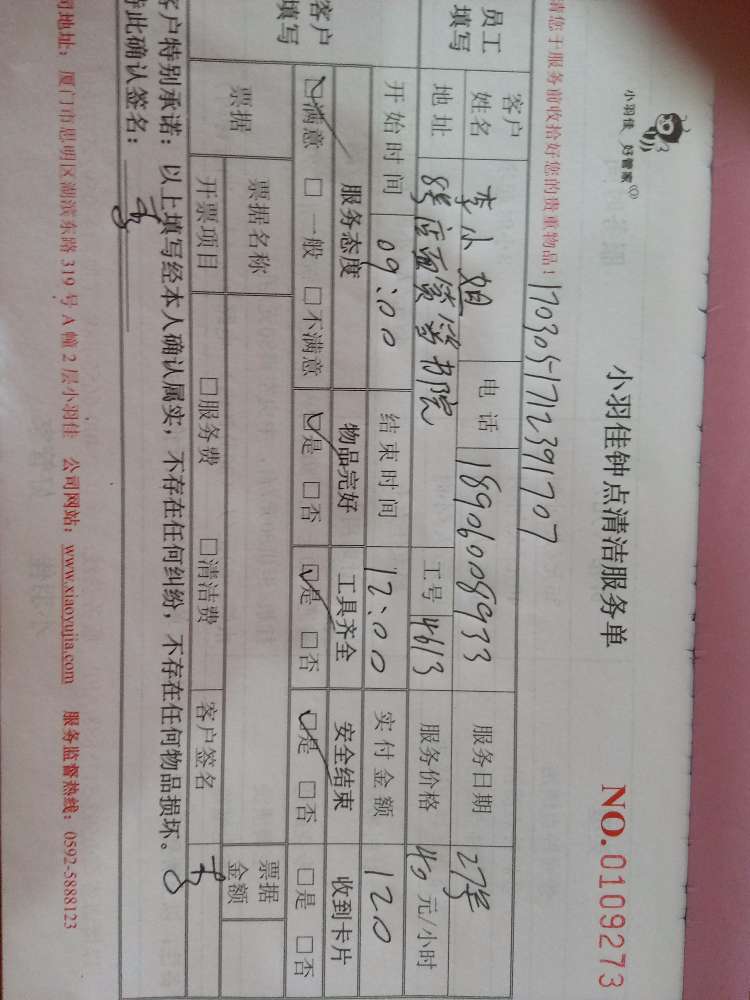 小羽佳 好管家
小羽佳钟点清洁服务单
NO.0109273
请您于服务前收拾好您的贵重物品！ 1703051712391707
员工填写
客户姓名 李小姐 电话 18906008933 服务日期 27号
地址 8号店面筼筜书院 工号 4613 服务价格 40 元/小时
开始时间 09:00 结束时间 12:00 实付金额 120
客户填写
服务态度 物品完好 工具齐全 安全结束 收到卡片
☑满意 □一般 □不满意 ☑是 □否 ☑是 □否 ☑是 □否 □是 □否
票据 票据名称 票据金额
开票项目 □服务费 □清洁费 客户签名
客户特别承诺：以上填写经本人确认属实，不存在任何纠纷，不存在任何物品损坏。
特此确认签名：
司地址：厦门市思明区湖滨东路 319 号 A 幢 2 层小羽佳 公司网站：www.xiaoyujia.com 服务监督热线：0592-5888123